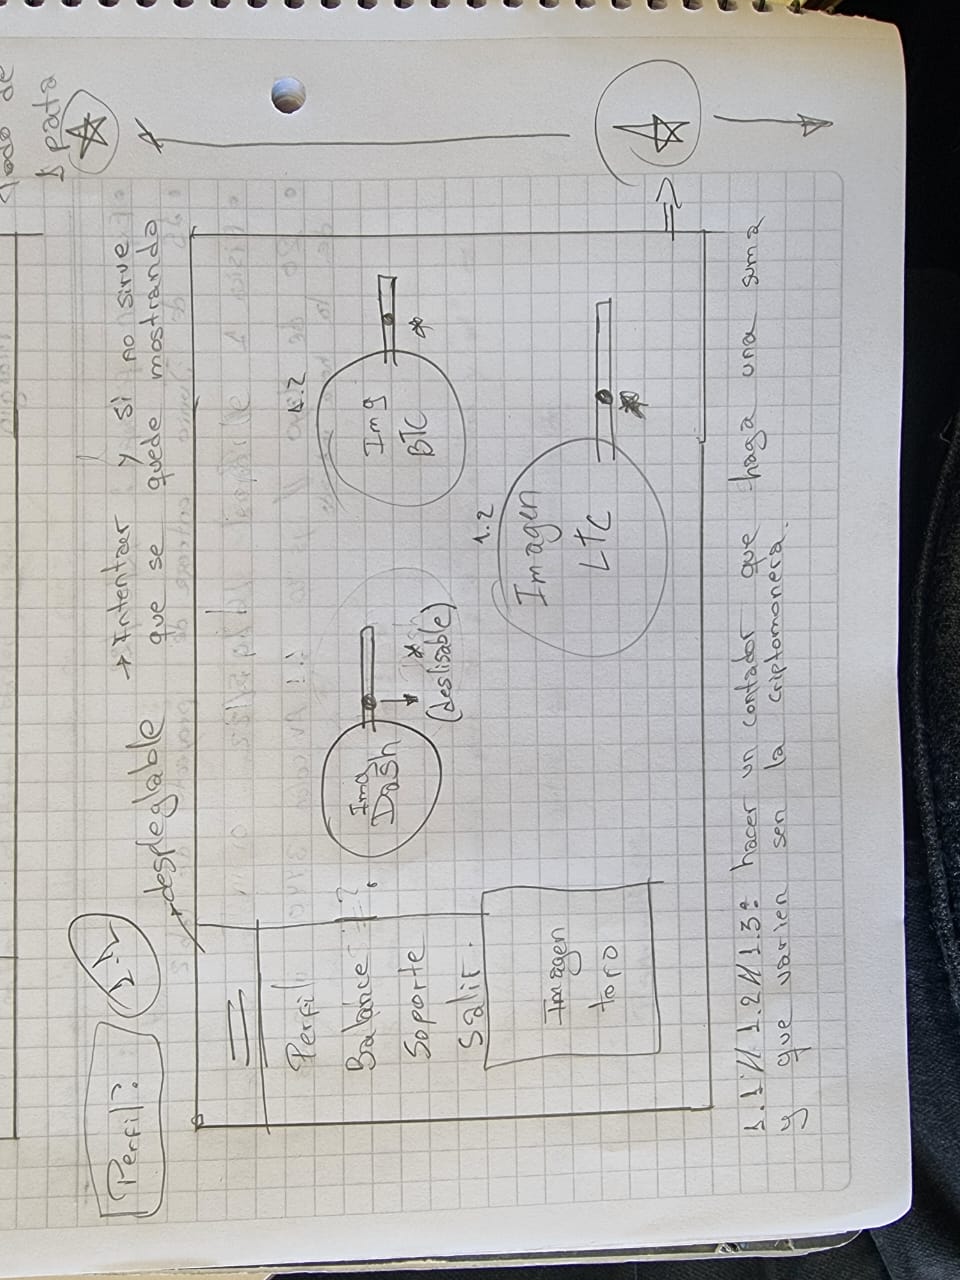 todo de
1 pata
Perfil?
1.1
despleglable
→ Intentaer y si no sirve
que se quede mostrando
Perfil
Balance = ?
Soporte
Salir.
Imagen
toro
Img
Dash
(deslisable)
1.2
Img
BTC
1.2
Imagen
LTC
1.1 // 1.2 // 1.3: hacer un contador que haga una suma
y que varien sen la criptomonera.